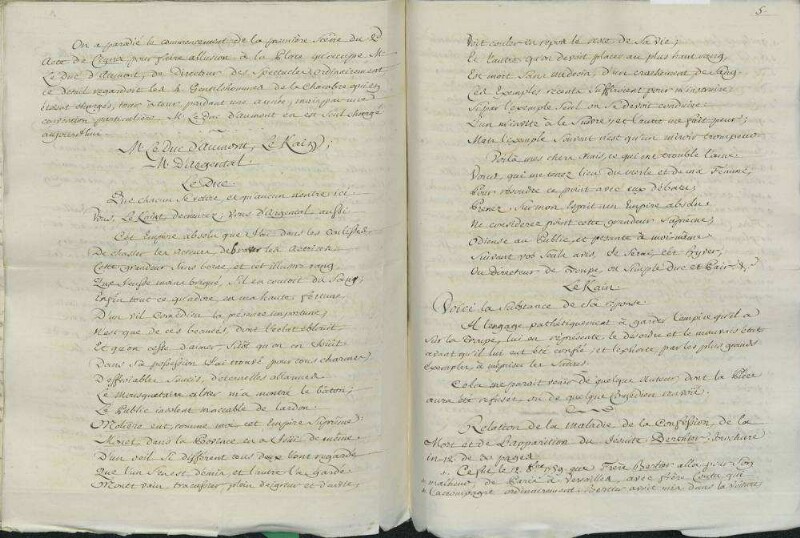 On a parodié le commencement de la première Scène du 2d
Acte de Cinna pour faire allusion à la Place qu'occupe M.
Le Duc d'Aumont, de Directeur des Spectacles. Ordinairement
ce détail regardoit les 4 Gentilshommes de la Chambre qui en
étoient chargés, tour à tour pendant une année, mais par une
constitution particulière M. Le Duc d'aumont en est seul chargé
aujourd'hui
M. Le Duc D'aumont, Le Kain,
M. D'Argental
Le Duc
Que chacun se retire et qu'aucun n'entre ici.
Vous, Le Kain, demeurez, vous d'Argental aussi
Cet Empire absolu que j'ai dans les coulisses
De chasser les acteurs, les actrices
Cette grandeur sans borne et cet illustre rang,
Que j'eusse moins brigué, s'il en eut coûté du sang,
Enfin tout ce qu'adore en ma haute fortune
D'un vil Comédien la présence importune;
N'est que de ces beautés, dont l'éclat éblouit
Et qu'on cesse d'aimer sitôt qu'on en jouit
Dans sa possession j'ai trouvé pour tous charmes,
D'effroyables soucis, d'éternelles allarmes
Le mousquetaire altier m'a montré le bâton;
Le Public insolent m'accable de lardon
Molière eut comme moi cet Empire suprême
Monet dans la Province en a joui de même
D'un œil si différent tous deux l'ont regardé
Que l'un s'en est démis et l'autre l'a gardé
Monet vain tracassier, plein d'aigreur et d'audace,
5.
Voit couler en repos le reste de sa vie;
Et l'autre qu'on devoit placer au plus haut rang
En mort sans médecin, d'un crachement de sang
Ces Exemples recents suffiroient pour m'instruire
Si par l'exemple seul on se devoit conduire:
L'un m'invite à le suivre, et l'autre me fait peur;
Mais l'exemple souvent n'est qu'un miroir trompeur
Voilà mes chers Amis, ce qui me trouble l'ame
Vous, qui me tenez lieu du Merle et de ma Femme,
Pour résoudre ce point avec eux débatu
Prenez sur mon esprit un Empire absolu
Ne considerez point cette grandeur suprême,
Odieuse au Public et pesante à moi même
Suivant vos seuls avis, je serai cet Hyver,
Ou Directeur de troupe, ou simple duc et Pair &c.
Le Kain
Voici la substance de sa réponse
Il l'engage pathétiquement à garder l'empire qu'il a
sur la troupe, lui en représente le désordre et le mauvais état
avant qu'il lui eut été confié et l'exhorte par les plus grands
Exemples à mépriser les
Cela me paroît venir de quelque Auteur dont la Pièce
aura été refusée ou de quelque Comédien
Relation de la maladie de la Confession, de la
Mort et de l'apparition du Jesuite Berthier Brochure
in 12. de 30 pages
Ce fut le 12. 8bre 1759 que Frère Berthier alla pour son
malheur, de Paris à Versailles, avec frère Coutu qui
l'accompagne ordinairement. Berthier avoit mis dans la voiture